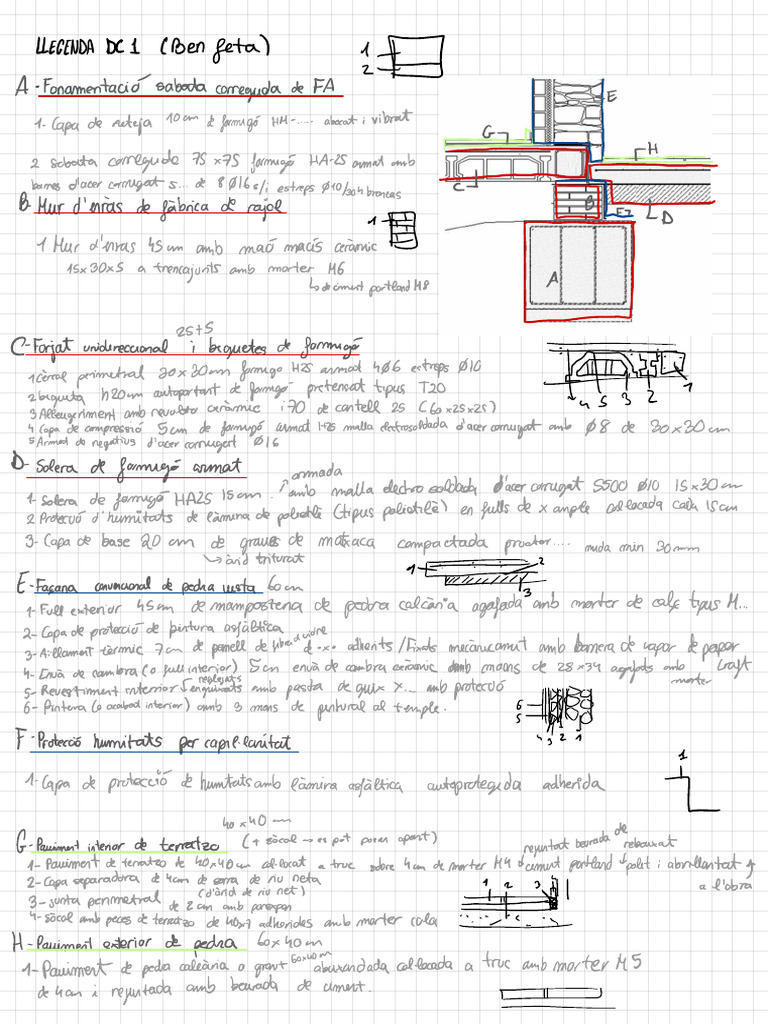 LLEGENDA DC1 (Ben feta)
1
2
A - Fonamentació sabada correguda de FA
1- Capa de neteja 10cm de formigó HM-..... abocat i vibrat
2 sabata correguda 75 x 75 formigó HA-25 armat amb
barres d'acer corrugat s... de 8 Ø16 s/i estreps Ø10/30 4 branques
B- Mur d'enràs de fàbrica de rajol
1
1 Mur d'enras 45 cm amb maó macís ceràmic
15x30x5 a trencajunts amb morter M6
↳ de ciment portland M8
E
G
H
C
B
F1
D
A
25+5
C-Forjat unidireccional i biguetes de formigó
1 cèrcol perimetral 30x30cm formigo H25 armat 4Ø6 estreps Ø10
2 bigueta h20cm autoportant de formigó pretensat tipus T20
3 Alleugeriment amb revoltó ceràmic i70 de cantell 25 (60x25x25)
4 Capa de compressió 5cm de formigó armat 1-25 malla electrosoldada d'acer corrugat amb Ø8 de 20x20cm
5 Armat de negatius d'acer corrugat Ø16
4 5 3 2 1
D- Solera de formigó armat
armada
1- Solera de formigó HA25 15cm. amb malla electro soldada d'acer corrugat S500 Ø10 15x30cm
2 Protecció d'humitats de làmina de polietilè (tipus poliotilè) en fulls de x ample col·locada cada 15cm
3- Capa de base 20 cm de graves de matxaca compactada proctor.... mida min 30mm
↳ àrid triturat
1 2 3
E- Façana convencional de pedra vista 60cm
1- Full exterior 45cm de mamposteria de pedra calcària agafada amb morter de calç tipus M...
2- Capa de protecció de pintura asfàltica
3- Aïllament tèrmic 7cm de panell de fibra de vidre de ... adherits/Fixats mecànicament amb barrera de vapor de paper Kraft
4- Envà de cambra (o full interior) 5cm envà de cambra ceràmic amb maons de 28x34 agafats amb morter
5- Revestiment interior enguixats amb pasta de guix x... amb protecció
6- Pintura (o acabat interior) amb 3 mans de pintura al temple.
6
5
4 3 2 1
F- Protecció humitats per capil·laritat
1- Capa de protecció de humitats amb làmina asfàltica autoprotegida adherida
1
40 x 40 cm
G- Paviment interior de terratzo (+ sòcol → es pot posar apart)
1- Paviment de terratzo de 40x40cm col·locat a truc sobre 4cm de morter M4 rejuntat beurada de ciment portland rebaixat polit i abrillantat a l'obra
2- Capa separadora de 4cm de sorra de riu neta
(d'àrid de riu net)
3- junta perimetral de 2cm amb porexpan
4- sòcol amb peces de terratzo de 40x7 adherides amb morter cola
1 2 3
H- Paviment exterior de pedra 60x40cm
1- Paviment de pedra calcària o granit 60x40cm abuxardada col·locada a truc amb morter M5
de 4cm i rejuntada amb beurada de ciment.